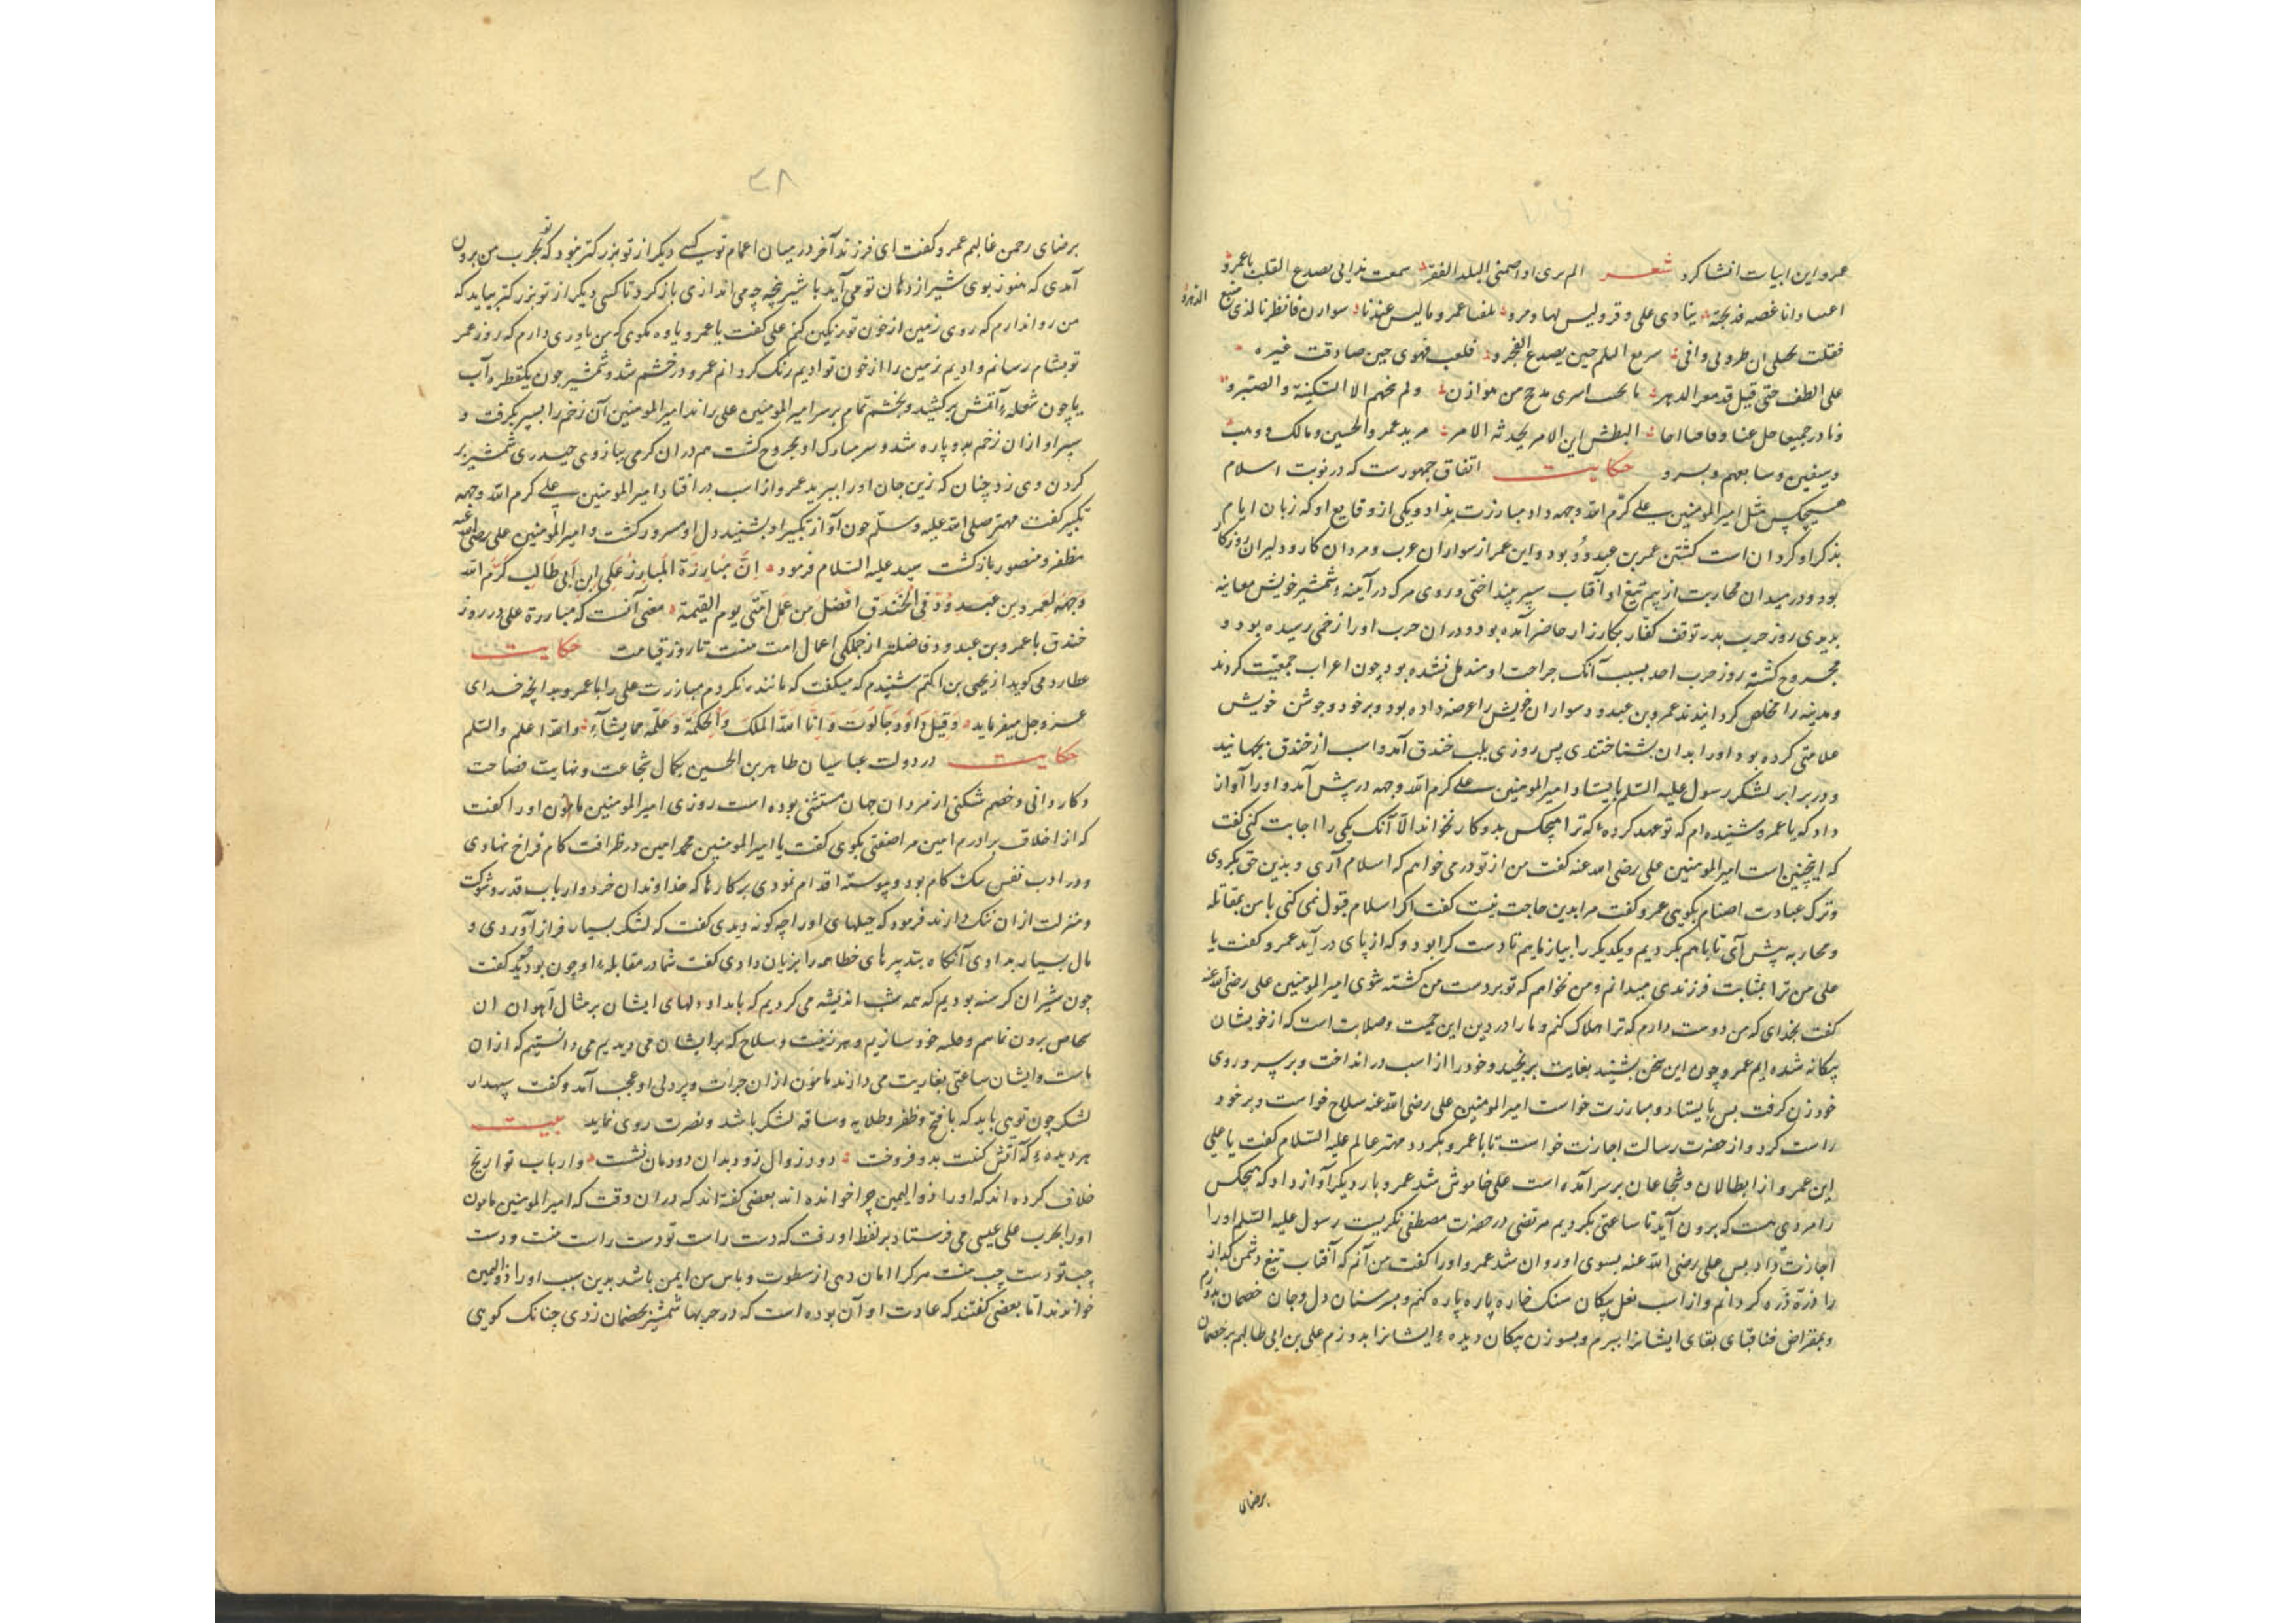 عمرو این ابیات انشا کرد شعر الم بری او اصمنی البلد الفقر سمعت ندایی یصدع القلب یا عمرو
ینادی علی وقر ولیس لها ومرو عمرو مالیس عندنا سواران فانظرنا لذی
فقلت سریع الیلم حین یصدع الفجرو فهوی حین صادقت غیره
علی الطف حتی قیل قد معر الدهر اسری مدیح من هوازن ولم نخهم الا السکینة والصبرو
البطش این الامر یحدثه الامر مرید عمرو الحسین ومالک
وسبقین وسابعهم وبسرو حکایت اتفاق جمهورست که در نوبت اسلام
هیچکس مثل امیرالمؤمنین علی کرّم الله وجهه داد مبارزت نداد و یکی از وقایع او که زبان ایام
بذکر او کردان است کشتن عمر بن عبدود بود و این عمر از سواران عرب و مردان کار و دلیران روزکار
بود و در میدان محاربت از بیم تیغ او آفتاب سپر بینداختی و روی مرک در آیینهٔ شمشیر خویش معاینه
بدیدی روز حرب بدر توقف کفار بکارزار حاضر آمده بود و در ان حرب اورا زخمی رسیده بود و
مجروح کشته روز حرب احد بسبب آنک جراحت او مندمل نشده بود چون اعراب جمعیّت کردند
و مدینه را مخلص کردانیدند عمرو بن عبدود سواران خویش را عرضه داده بود و بر خود و جوشن خویش
علامتی کرده بود و اورا بدان بشناختندی پس روزی بلب خندق آمد و اسب از خندق بجهانید
و در برابر لشکر رسول علیه السلم بایستاد امیرالمومنین علی کرم الله وجهه در پش آمد و اورا آواز
داد که یا عمرو شنیده‌ام که تو عهد کردهٔ که ترا هیچکس بدو کار نخواند الّا آنک یکی را اجابت کنی کفت
که اینچنین است امیرالمومنین علی رضی الله عنه کفت من از تو در می خواهم که اسلام آری و بدین حق بکروی
و ترک عبادت اصنام بکویی عمرو کفت مرا بدین حاجت نیست کفت اکر اسلام قبول نمی کنی با من بمقاتله
و محاربه پیش آی تا با هم بکردیم و یکدیکر را بیازماییم تا دست کرا بود و که از پای در آید عمرو کفت یا
علی من ترا بمثابت فرزندی میدانم و من نخواهم که تو بر دست من کشته شوی امیرالمومنین علی رضی الله عنه
کفت بخدای که من دوست دارم که ترا هلاک کنم و ما را در دین این حمیت و صلابت است که از خویشان
بیکانه شده‌ایم عمرو چون این سخن بشنید بغایت برنجید و خودرا از اسب در انداخت و بر سر و روی
خود زدن کرفت پس بایستاد و مبارزت خواست امیرالمومنین علی رضی الله عنه سلاح خواست و بر خود
راست کرد و از حضرت رسالت اجازت خواست تا با عمرو بکردد مهتر عالم علیه السّلام کفت یا علی
این عمرو از ابطالان و شجاعان بر سر آمده است علی خاموش شد عمرو بار دیکر آواز داد که هیچکس
را مردی هست که برون آید تا ساعتی بکردیم مرتضی در حضرت مصطفی نکریست رسول علیه السّلم اورا
اجازت داد پس علی رضی الله عنه بسوی او روان شد عمرو اورا کفت من آنم که آفتاب تیغ دشمن کداز
را ذرّه ذرّه کردانم و از اسب نعل پیکان سنک خاره پاره پاره کنم و بسر سنان دل و جان خصمان بدوزم
و بمقراض فنا قبای بقای ایشانرا ببرم و بسوزن پیکان دیدهٔ ایشانرا بدوزم علی بن ابی طالبم بر خصمان
برضای
۳۸
برضای رحمن غالبم عمرو کفت ای فرزند آخر در میان اعمام تو کسی دیکر از تو بزرکتر نبود که تو بحرب من برون
آمدی که هنوز بوی شیر از دهان تو می آید با شیر پنجه چه می اندازی باز کرد تا کسی دیکر از تو بزرکتر بیاید که
من روا ندارم که روی زمین از خون تو رنکین کنم علی کفت یا عمرو یاوه مکوی که من یاوری دارم که روز عمر
تو بشام رسانم و ادیم زمین را از خون تو ادیم رنک کردانم عمرو در خشم شد و شمشیر چون یکقطرهٔ آب
یا چون شعلهٔ آتش بر کشید و بخشم تمام بر سر امیرالمومنین علی راند امیرالمومنین آن زخم را بسپر بکرفت و
سپر او از ان زخم بدو پاره شد و سر مبارک او مجروح کشت هم در ان کرمی ببازوی حیدری شمشیر بر
کردن وی زد چنان که زین جان اورا ببرید عمرو از اسب در افتاد امیرالمومنین علی کرم الله وجهه
تکبیر کفت مهتر صلی الله علیه وسلّم چون آواز تکبیر او بشنید دل او مسرور کشت و امیرالمومنین علی رضی الله عنه
مظفر و منصور باز کشت سید علیه السّلام فرمود اِنَّ مُبارِزَةَ المُبارِز عَلِی ابن اَبی طَالِب کَرّم الله
وَجهَه لِعَمرو بن عبدوُدّ فی الخَندَق افضَل مِن عَمَل امَّتی یوم القیمة معنی آنست که مبارزة علی در روز
خندق با عمرو بن عبدود فاضلتر از جملکی اعمال امت منست تا روز قیامت حکایت
عطارد می کوید از یحیی بن اکثم شنیدم که میکفت که مانند نکردم مبارزت علی را با عمرو بدانچه خدای
عزوجل میفرماید وَقَتَل دَاوُد جَالُوت وَاتَاه الله الملکَ وَالحِکمَة وَعَلّمَه مما یَشَآء والله اعلم والسّلم
حکایت در دولت عباسیان طاهر بن الحسین بکمال شجاعت و نهایت فصاحت
و کاردانی و خصم شکنی از مردان جهان مستثنی بوده است روزی امیرالمومنین مامون اورا کفت
که از اخلاق برادرم امین مرا صفتی بکوی کفت یا امیرالمومنین محمد امین در ظرافت کام فراخ نهادی
و در ادب نفس تنک کام بود و پیوسته اقدام نمودی بر کارها که خداوندان خرد و ارباب قدر و شوکت
و منزلت از ان ننک دارند فرمود که حیلهای اورا چه کونه دیدی کفت که لشکر بسیار فراز آوردی و
مال بسیار بدادی آنکاه بتدبیرهای خطا همه را بزیان دادی کفت شما در مقابلهٔ او چون بودید کفت
چون شیران کرسنه بودیم که همه شب اندیشه می کردیم که بامداد دلهای ایشان بر مثال آهوان ان
برون و حله خود سازیم و هر زینت و سلاح که بر ایشان می دیدیم می دانستیم که از ان
ماست و ایشان ساعتی بعاریت می دارند مامون از ان جرات و پر دلی او عجب آمد و کفت سپهدار
لشکر چون تویی باید که با فتح و ظفر و طلایه و ساقه لشکر باشد و نصرت روی نماید بیت
هر دیدهٔ که آتش کنت بدو فروخت دود زوال زود بدان دودمان نشست و ارباب تواریخ
خلاف کرده‌اند که اورا ذوالیمین چرا خوانده‌اند بعضی کفته‌اند که در ان وقت که امیرالمومنین مامون
اورا بحرب علی عیسی می فرستاد بر لفظ او رفت که دست راست تو دست راست منست و دست
چپ تو دست چپ منست هر کرا امان دهی از سطوت و باس من ایمن باشد بدین سبب اورا ذوالیمین
خواندند اما بعضی کفتند که عادت او آن بوده است که در حربها شمشیر بخصمان زدی چنانک کویی